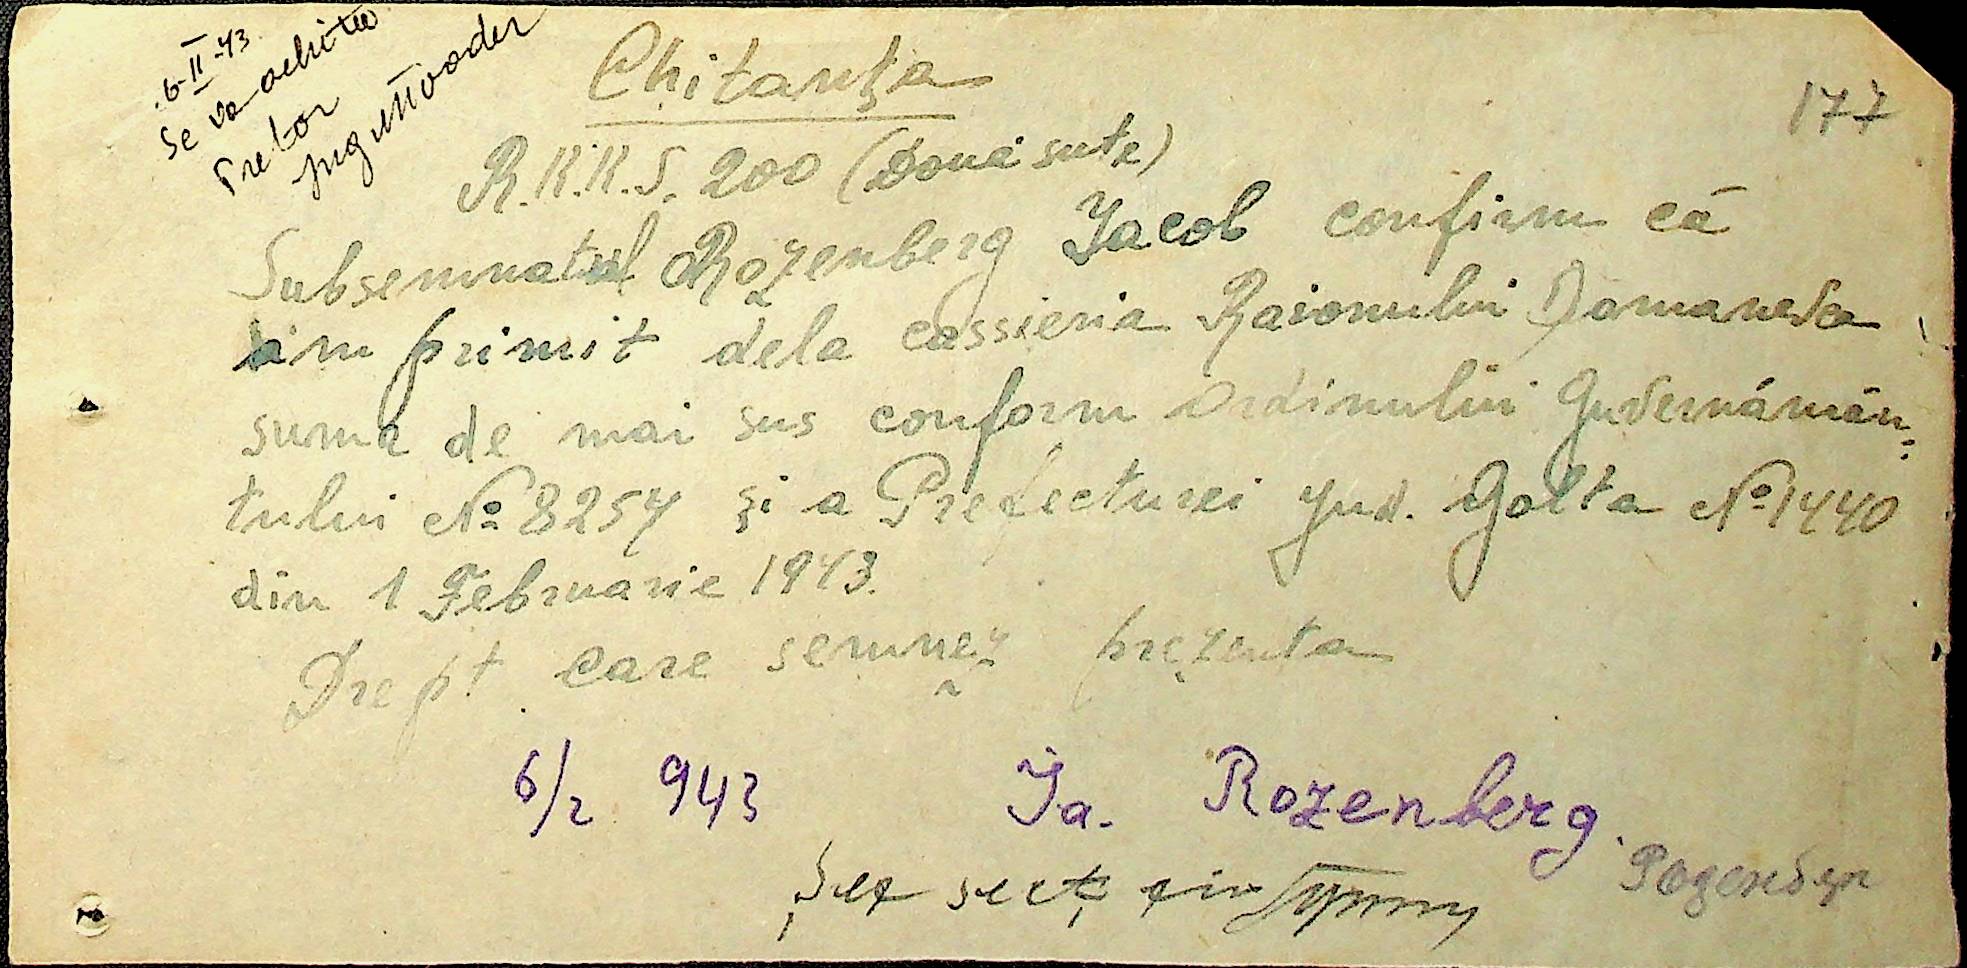 6-II-43
Se va achita
Pretor
Chitanţa
177
R.K.K.S. 200 (Două sute)
Subsemnatul Rozenberg Jacob confirm că
am primit dela cassieria Raionului Domanevca
suma de mai sus conform Ordinului Guvernămân-
tului № 8254 şi a Prefecturei Jud. Golta № 1440
din 1 Februarie 1943.
Drept care semnez prezenta
6/2 943 Ja. Rozenberg.
Şef secţ. fin